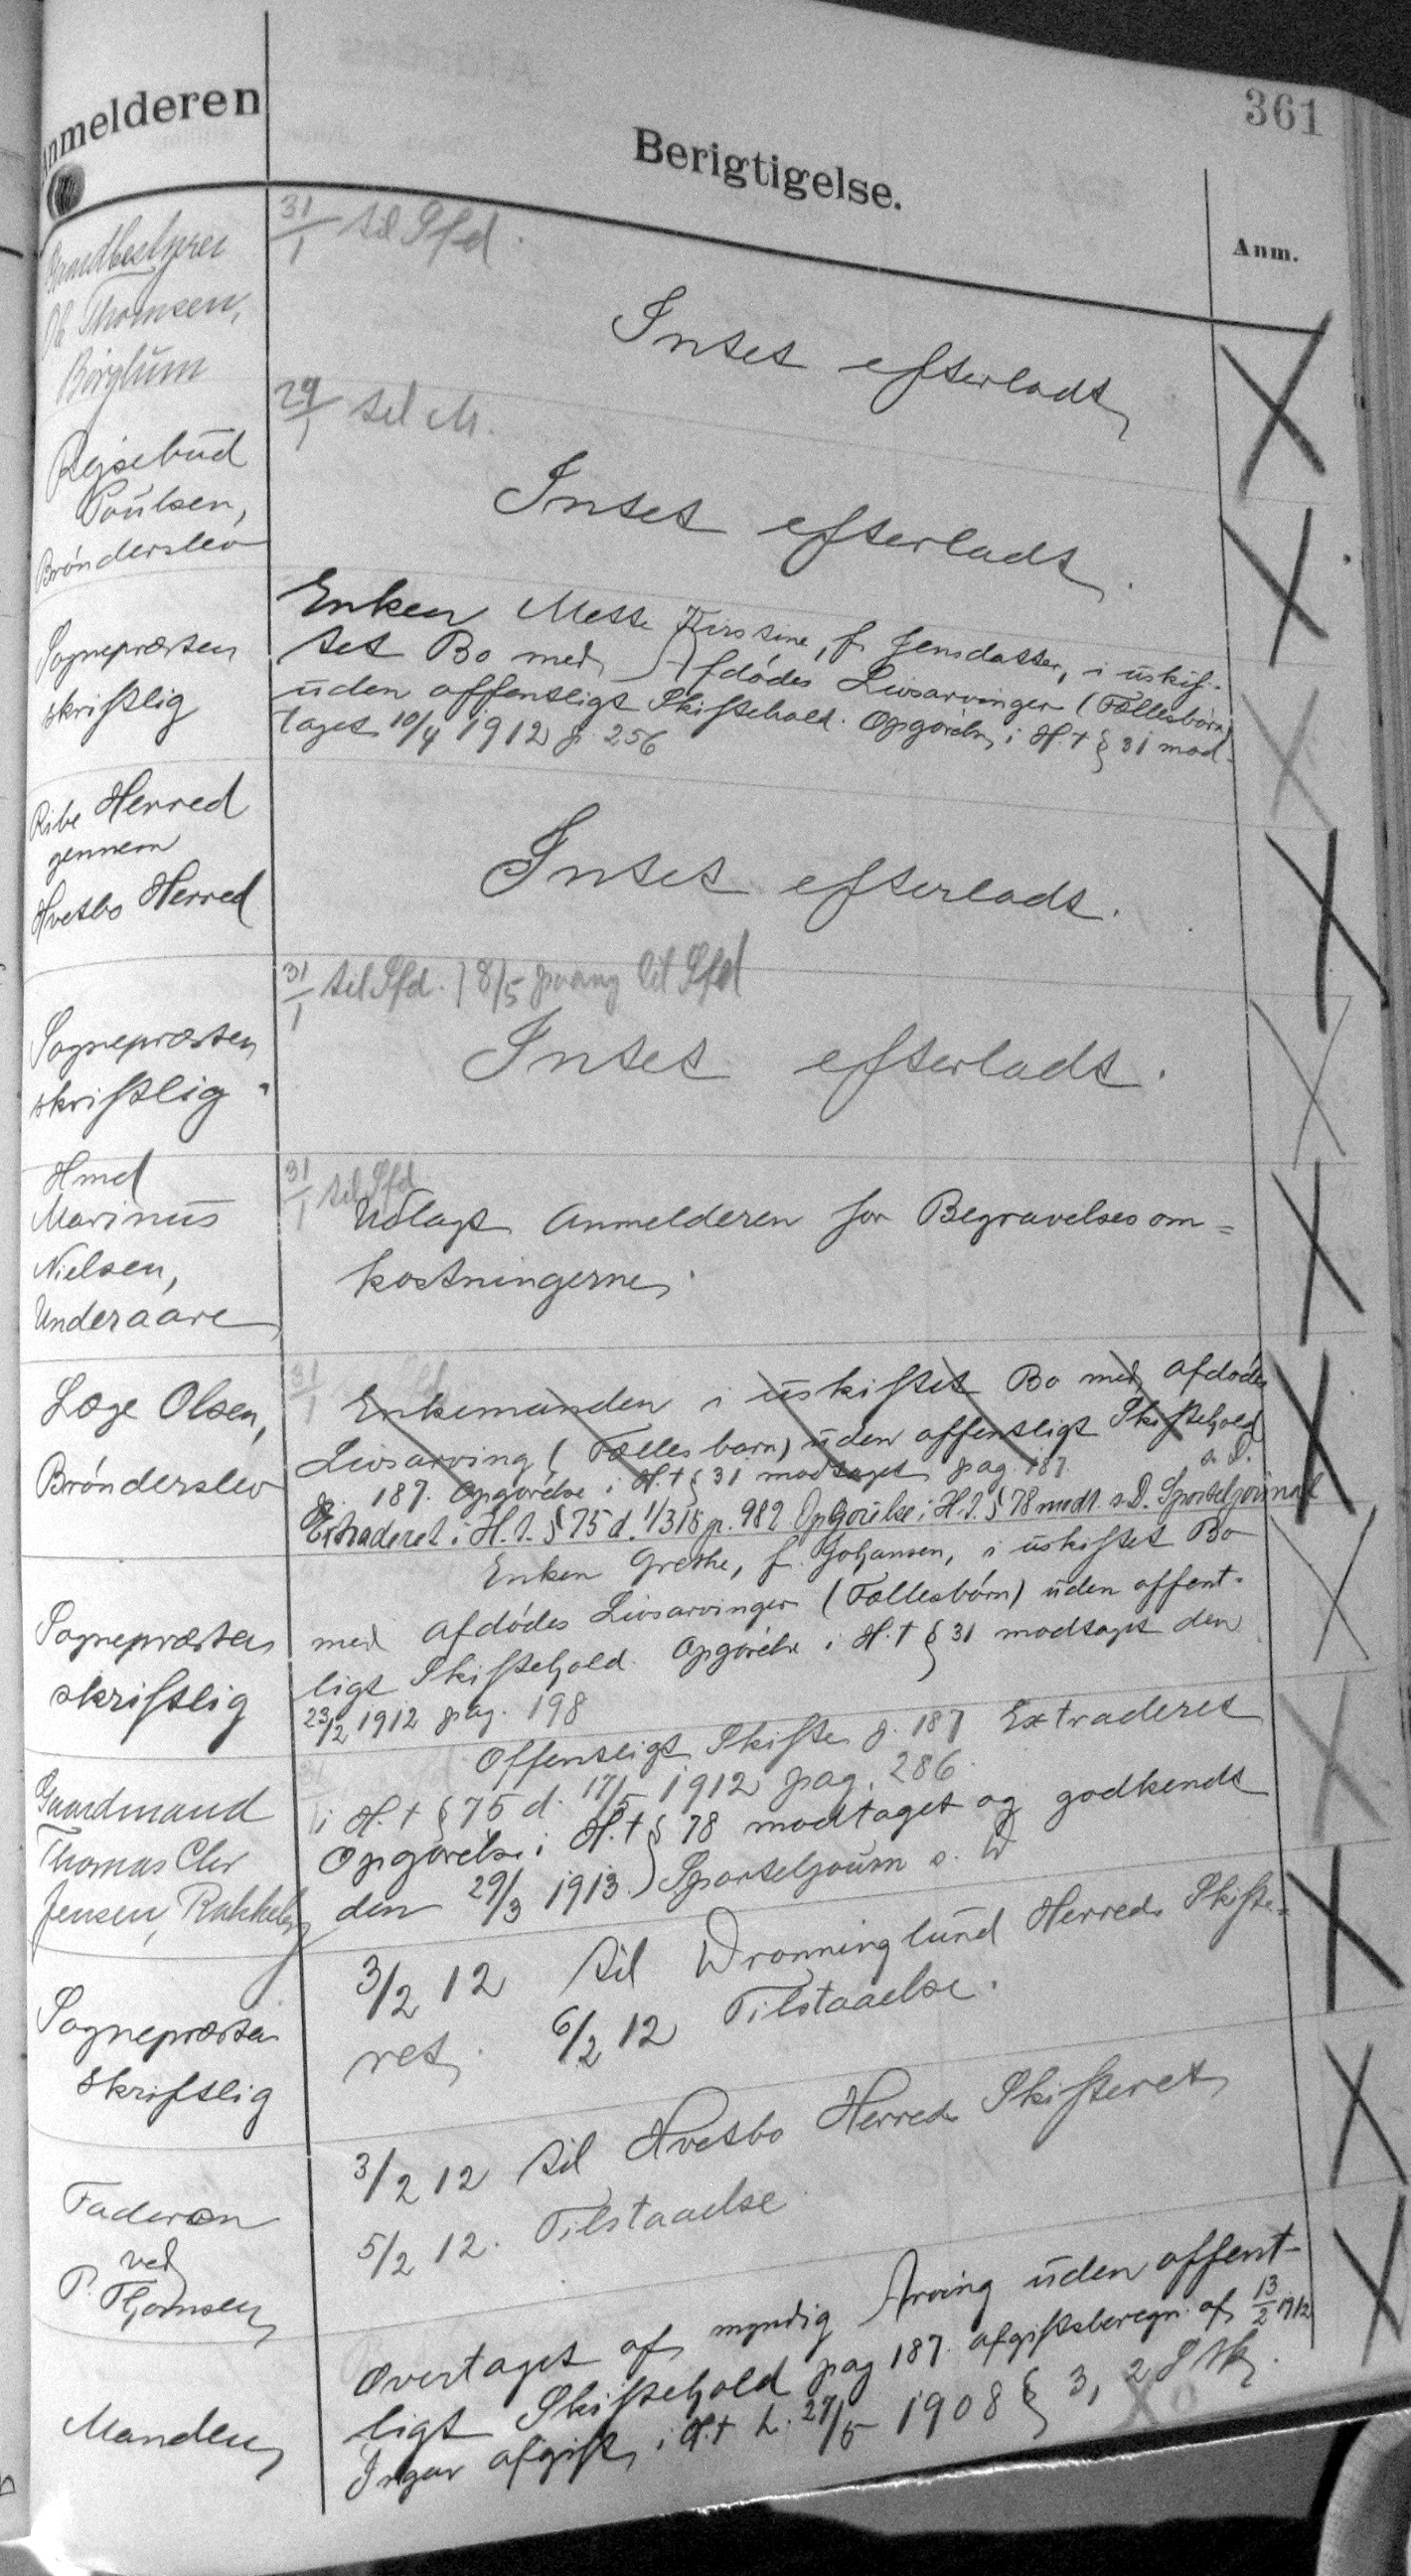 361
Anmelderen
Berigtigelse.
Anm.
31/1 til Sfd.
Thomsen,
Börglum
Intet efterladt
29/1 til M.
Rejsebud
Poulsen,
Brønderslev
Intet efterladt.
Sognepræsten
skriftlig
Enken Mette Kirstine, f. Jensdatter, i uskif-
tet Bo med Afdødes Livsarvinger (Fællesbørn)
uden offentligt Skiftehold. Opgørelse i H.t § 31 mod-
taget 10/4 1912 p. 256
Ribe Herred
gennem
Hvetbo Herred
Intet efterladt.
31/1 til Sfd. 8/5 til Sfd
Sognepræsten
skriftlig
Intet efterladt.
31/1 til Sfd
Hmd
Marinus
Nielsen,
Underaare
Udlagt Anmelderen for Begravelsesom=
kostningerne.
31/1
Læge Olsen,
Brønderslev
Enkemanden i uskiftet Bo med afdødes
Livsarving (Fællesbarn) uden offentligt Skiftehold
p. 187. Opgørelse i H.t § 31 modtaget pag. 187
s. D.
Extraderet i H.t. § 75 d. 1/3 15 p. 982 Opgørelse i H.t. § 78 modt. s.D. Sporteljournal
Sognepræsten
skriftlig
Enken Grethe, f. Johansen, i uskiftet Bo
med Afdødes Livsarvinger (Fællesbørn) uden offent-
ligt Skiftehold. Opgørelse i H.t § 31 modtaget den
23/12 1912 pag. 198
Gaardmand
Thomas Chr
Jensen, Rakkeby
Offentligt Skifte p. 187 Extraderet
i H.t § 75 d. 17/5 1912 pag. 286.
Opgørelse i H.t § 78 modtaget og godkendt
den 29/3 1913. Sporteljourn s. D
Sognepræsten
skriftlig
3/2 12 til Dronninglund Herreds Skifte-
ret. 6/2 12 Tilstaaelse.
Faderen
ved
P. Thomsen
3/2 12 til Hvetbo Herreds Skifteret
5/2 12. Tilstaaelse.
Manden
Overtaget af myndig Arving uden offent-
ligt Skiftehold pag 187. afgiftsberegn. af 13/2 1912
Ingen afgift i H.t L. 27/5 1908 § 3, 2